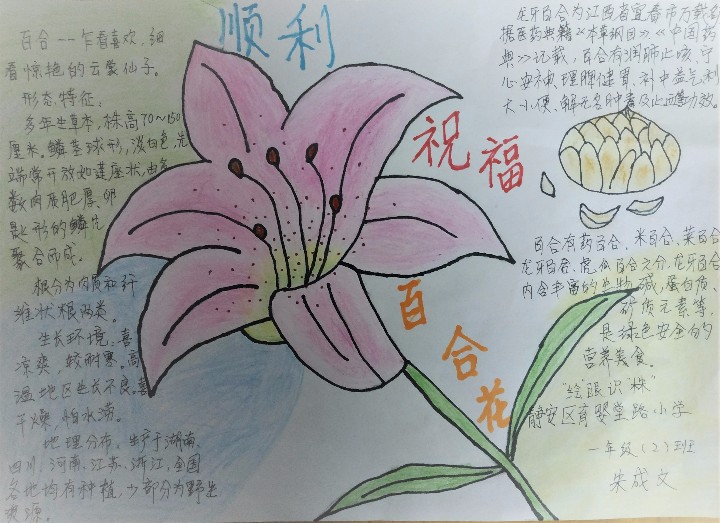 顺利
祝福
百合花
百合——乍看喜欢,细
看惊艳的云裳仙子。
形态特征:
多年生草本,株高70～150
厘米,鳞茎球形,淡白色,先
端常开放如莲座状,由多
数肉质肥厚、卵
匙形的鳞片
聚合而成。
根分为肉质和纤
维状根两类。
生长环境:喜
凉爽,较耐寒。高
温地区生长不良。喜
干燥,怕水涝。
地理分布:生产于湖南、
四川、河南、江苏、浙江,全国
各地均有种植,少部分为野生
资源。
龙牙百合为江西省宜春市万载
据医药典籍《本草纲目》、《中国药
典》记载,百合有润肺止咳、宁
心安神、理脾健胃、补中益气、利
大小便、解无名肿毒及止
功效
百合有药百合、米百合、菜百合
龙牙百合、虎皮百合之分,龙牙百合
内含丰富的生物碱、蛋白质、
矿质元素等,
是绿色安全的
营养美食。
"绘"眼识"株"
静安区育婴堂路小学
一年级(2)班
朱成文